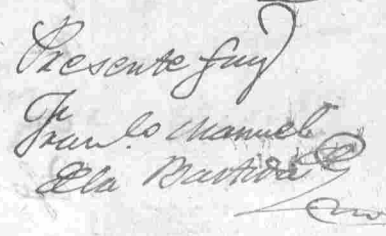 Presente fuy
Fr
Fran.co Manuel
de la Bastida